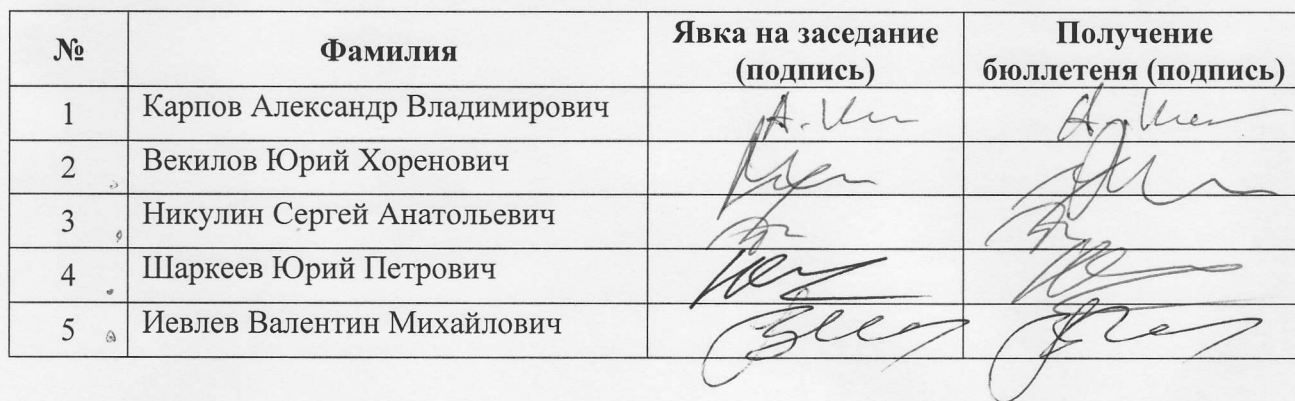 № Фамилия Явка на заседание (подпись) Получение бюллетеня (подпись)
1 Карпов Александр Владимирович
2 Векилов Юрий Хоренович
3 Никулин Сергей Анатольевич
4 Шаркеев Юрий Петрович
5 Иевлев Валентин Михайлович